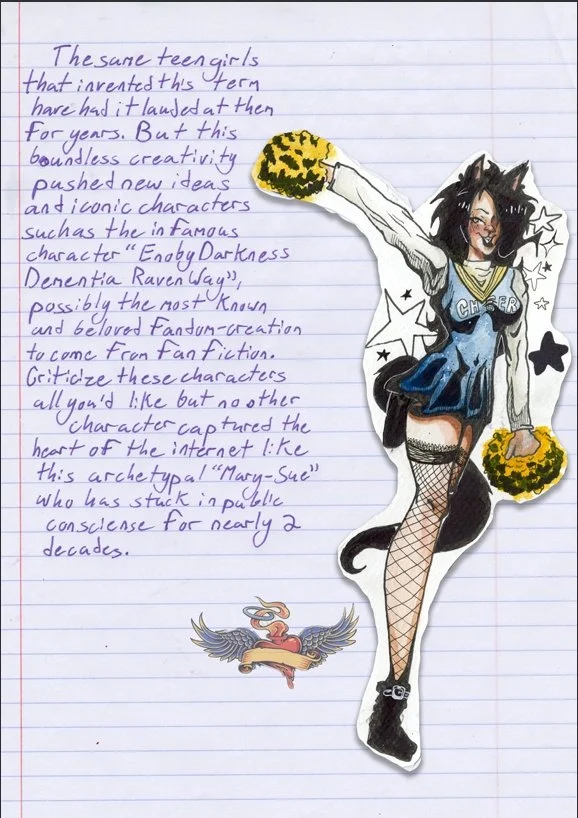 The same teen girls
that invented this term
have had it lauded at them
for years. But this
boundless creativity
pushed new ideas
and iconic characters
such as the infamous
character "Enoby Darkness
Dementia Raven Way",
possibly the most known
and beloved Fandom-creation
to come from fanfiction.
Criticize these characters
all you'd like but no other
character captured the
heart of the internet like
this archetypal "Mary-Sue"
who has stuck in public
consciense for nearly 2
decades.
CHEER